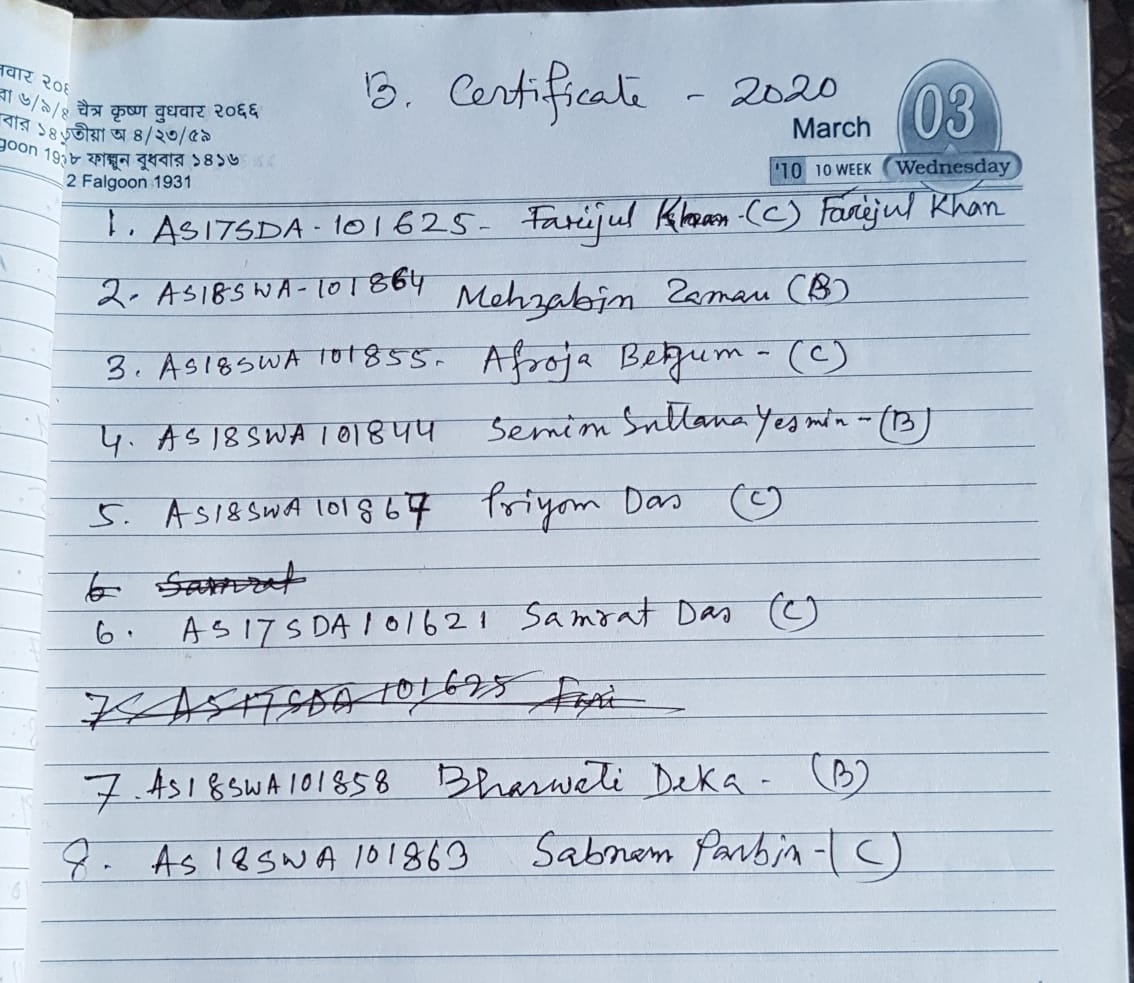 B. Certificate - 2020
चैत्र कृष्ण बुधवार २०६६
तृतीया अ ४/२७/५९
फाल्गुन बुधवार १४१६
2 Falgoon 1931
March 03
'10 10 WEEK Wednesday
1. AS17SDA-101625- Farijul Khan-(C) Farijul Khan
2. AS18SWA-101864 Mehzabin Zaman (B)
3. AS18SWA 101855- Afroja Begum - (C)
4. AS18SWA101844 Semim Sultana Yesmin-(B)
5. AS18SWA101867 Priyom Das (C)
6 Samrat
6. AS17SDA101621 Samrat Das (C)
7 AS17SDA 101625 Fari
7. AS18SWA101858 Bharwati Deka - (B)
8. AS18SWA101863 Sabnam Parbin-(C)